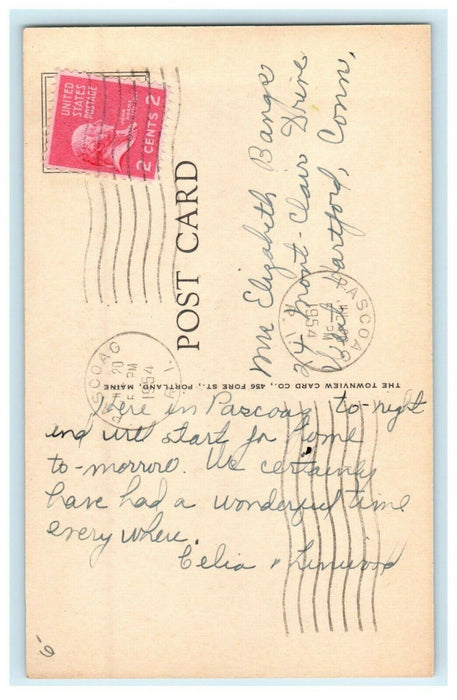 UNITED
STATES
POSTAGE
JOHN
ADAMS
2 CENTS 2
POST CARD
Mrs Elizabeth Bangs
24 Mont-Clair Drive
West Hartford, Conn,
PASCOAG
PM
1954
R. I.
PASCOAG
20
PM
1954
R. I.
THE TOWNVIEW CARD CO., 456 FORE ST., PORTLAND, MAINE
Here in Pascoag to-night
and will start for home
to-morrow. We certainly
have had a wonderful time
every where.
Celia & Linwood